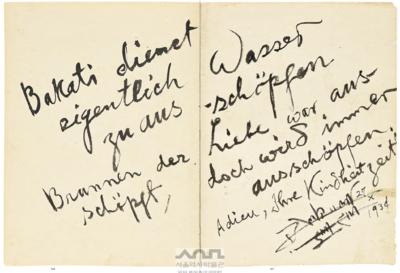 Bakati dienet
eigentlich
zu aus
Brunnen der
schöpft,
Wasser
-schöpfen
Liebe war aus-
doch wird immer
ausschöpfen.
Adieu, Ihre Kindheitzeit!
1934
서울역사박물관